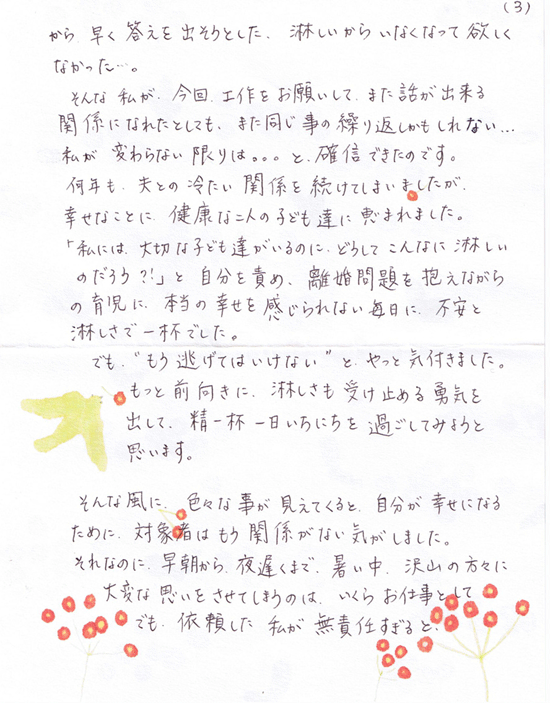 (3)
から、早く答えを出そうとした。淋しいからいなくなって欲しく
なかった…。
そんな私が、今回、工作をお願いして、また話が出来る
関係になれたとしても、また同じ事の繰り返しかもしれない…
私が変わらない限りは。。。と、確信できたのです。
何年も、夫との冷たい関係を続けてしまいましたが、
幸せなことに、健康な二人の子ども達に恵まれました。
「私には、大切な子ども達がいるのに、どうしてこんなに淋しい
のだろう?!」と自分を責め、離婚問題を抱えながら
の育児に、本当の幸せを感じられない毎日に、不安と
淋しさで一杯でした。
でも、“もう逃げてはいけない”と、やっと気付きました。
もっと前向きに、淋しさも受け止める勇気を
出して、精一杯一日いちにちを過ごしてみようと
思います。
そんな風に、色々な事が見えてくると、自分が幸せになる
ために、対象者はもう関係がない気がしました。
それなのに、早朝から、夜遅くまで、暑い中、沢山の方々に
大変な思いをさせてしまうのは、いくらお仕事として
でも、依頼した私が無責任すぎると、